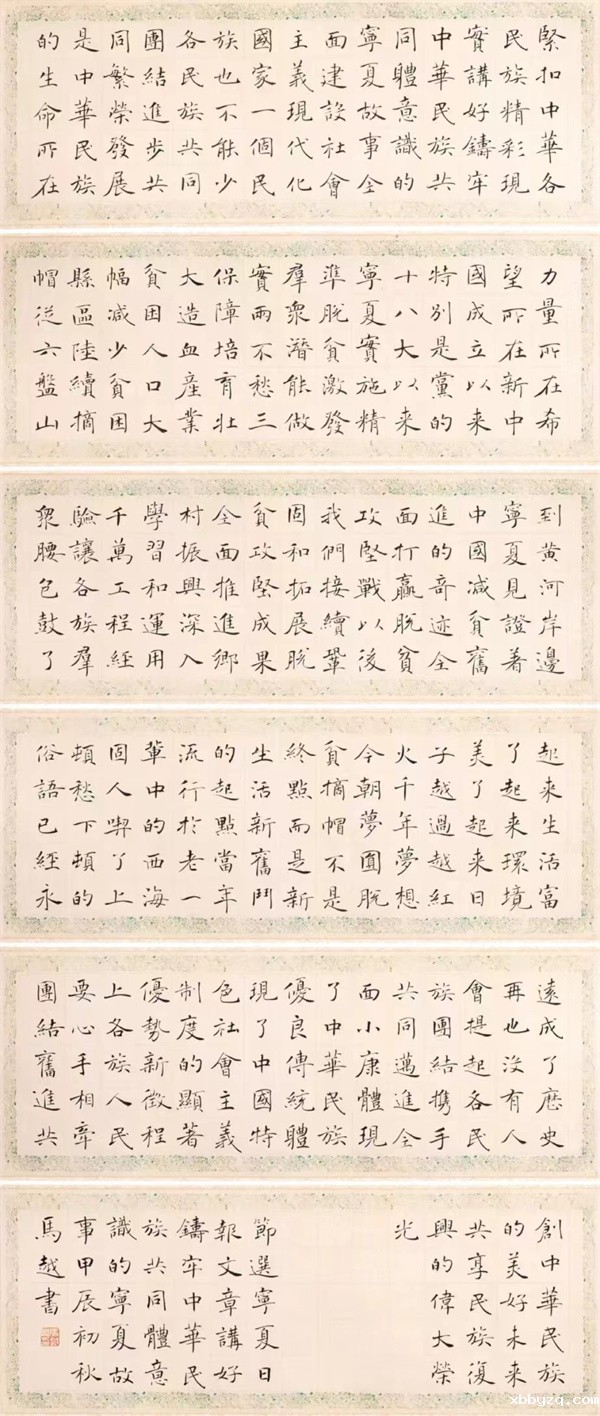 緊扣中華各
民族精彩現
實講好鑄牢
中華民族共
同體意識的
寧夏故事全
面建設社會
主義現代化
國家一個民
族也不能少
各民族共同
團結進步共
同繁榮發展
是中華民族
的生命所在
力量所在希
望所在新中
國成立以來
特別是黨的
十八大以來
寧夏實施精
準脫貧激發
羣衆潛能做
實兩不愁三
保障培育壯
大造血産業
貧困人口大
幅減少貧困
縣區陸續摘
帽從六盤山
到黃河岸邊
寧夏見證著
中國減貧奮
進的奇迹全
面打贏脫貧
攻堅戰以後
我們接續鞏
固和拓展脫
貧攻堅成果
全面推進鄉
村振興深入
學習和運用
千萬工程經
驗讓各族羣
衆腰包鼓了
起來生活富
了起來環境
美了起來日
子越過越紅
火千年夢想
今朝夢圓脫
貧摘帽不是
終點而是新
生活新奮鬥
的起點當年
流行於老一
輩中的西海
固人喫了上
頓愁下頓的
俗語已經永
遠成了歷史
再也沒有人
會提起各民
族團結攜手
共同邁進全
面小康體現
了中華民族
優良傳統體
現了中國特
色社會主義
制度的顯著
優勢新徵程
上各族人民
要心手相牽
團結奮進共
創中華民族
的美好未來
共享民族復
興的偉大榮
光
節選寧夏日
報文章講好
鑄牢中華民
族共同體意
識的寧夏故
事甲辰初秋
馬越書
xbbyzq.com